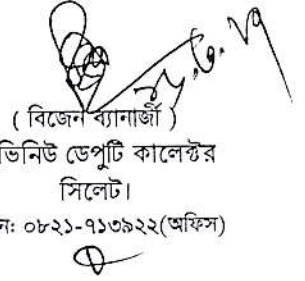 ( বিজেন ব্যানার্জী )
ভিনিউ ডেপুটি কালেক্টর
সিলেট।
ন: ০৮২১-৭১৩৯২২(অফিস)